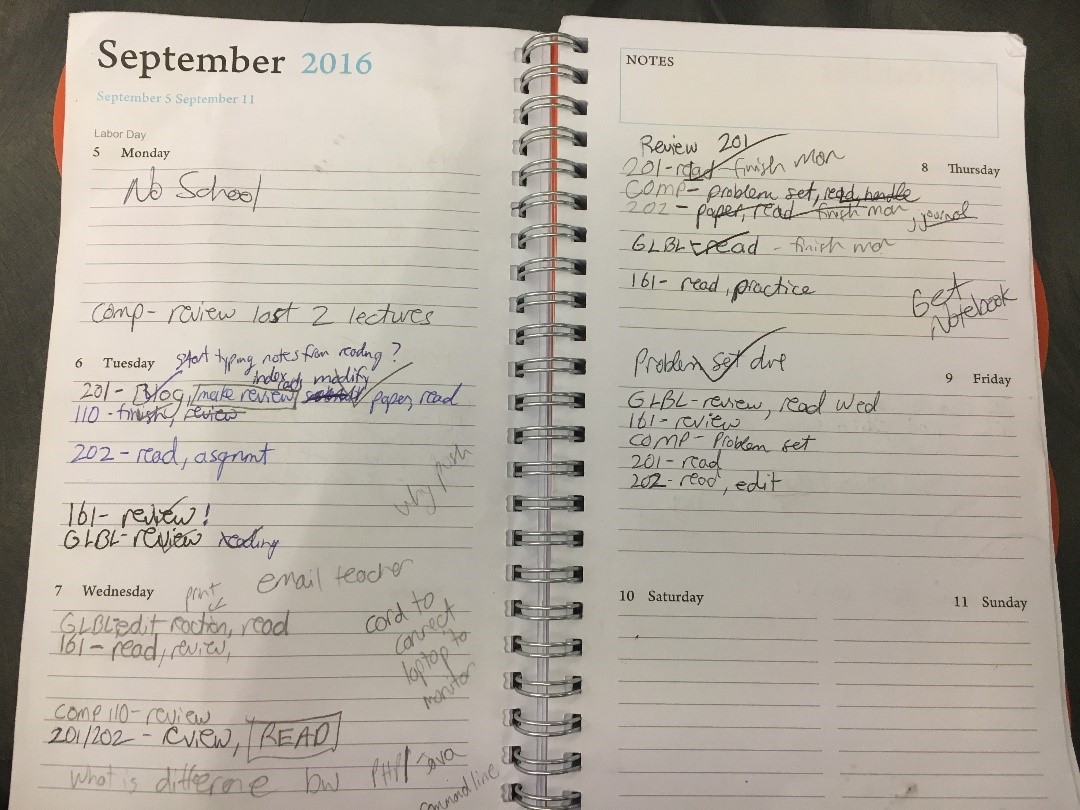 September 2016
September 5 September 11
Labor Day
5 Monday
No School
Comp- review last 2 lectures
6 Tuesday
start typing notes from reading?
index, read, modify
201- Blog, make review, paper, read
110- finish, review
202- read, asgnmt
why push
161- review!
GLBL- review reading
7 Wednesday
print
email teacher
GLBL- edit reaction, read
161- read, review,
cord to
connect
laptop to
monitor
comp 110- review
201/202- review, READ
What is difference bw PHP/Java
command line
NOTES
Review 201
8 Thursday
201- read- finish mon
COMP- problem set, read, handle
202- paper, read- finish mon, journal
GLBL- read- finish mon
161- read, practice
Get
Notebook
Problem set due
9 Friday
GLBL- review, read Wed
161- review
COMP- Problem set
201- read
202- read, edit
10 Saturday
11 Sunday